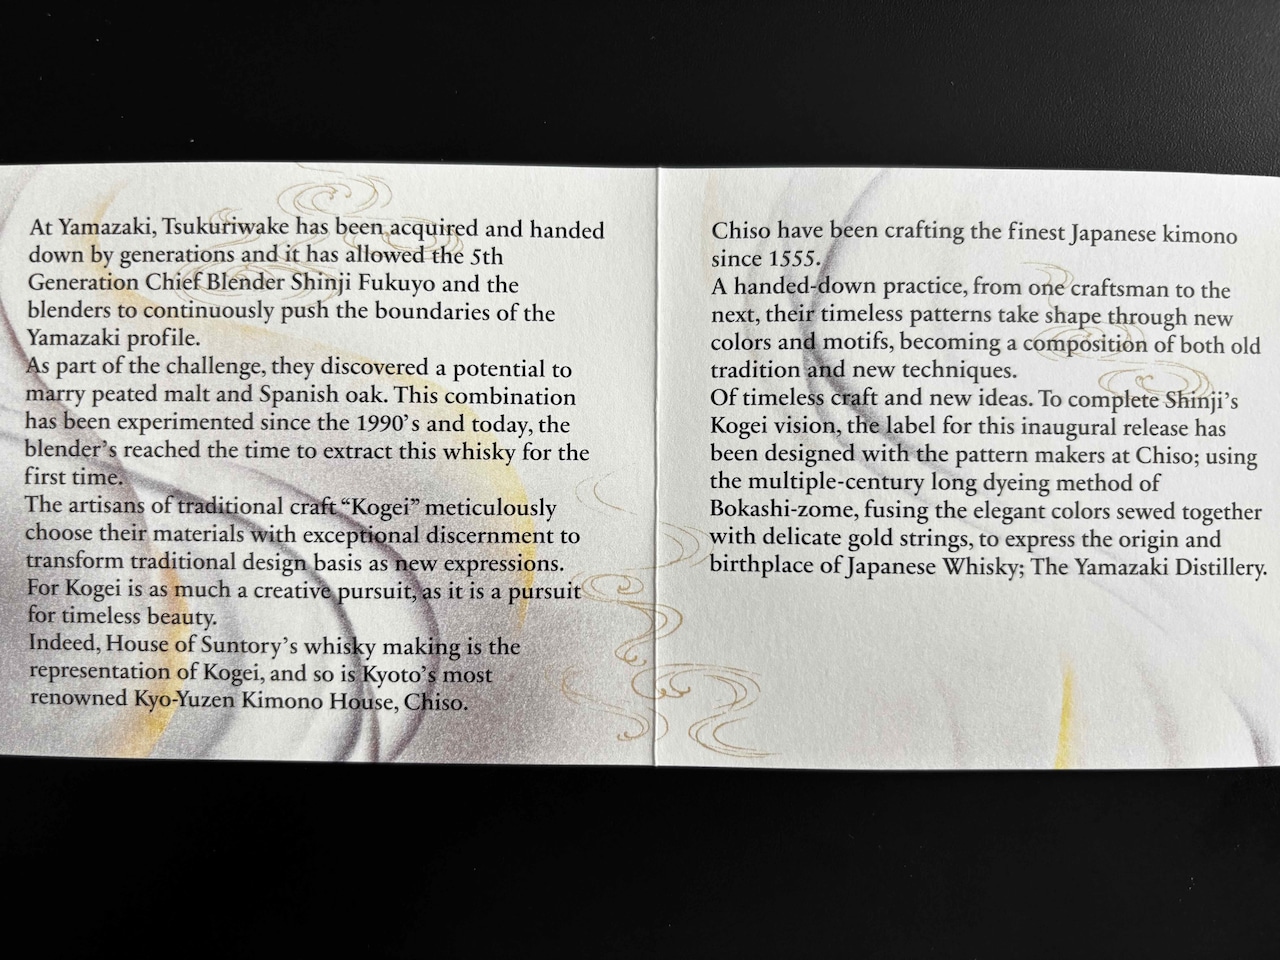 At Yamazaki, Tsukuriwake has been acquired and handed
down by generations and it has allowed the 5th
Generation Chief Blender Shinji Fukuyo and the
blenders to continuously push the boundaries of the
Yamazaki profile.
As part of the challenge, they discovered a potential to
marry peated malt and Spanish oak. This combination
has been experimented since the 1990’s and today, the
blender’s reached the time to extract this whisky for the
first time.
The artisans of traditional craft “Kogei” meticulously
choose their materials with exceptional discernment to
transform traditional design basis as new expressions.
For Kogei is as much a creative pursuit, as it is a pursuit
for timeless beauty.
Indeed, House of Suntory’s whisky making is the
representation of Kogei, and so is Kyoto’s most
renowned Kyo-Yuzen Kimono House, Chiso.
Chiso have been crafting the finest Japanese kimono
since 1555.
A handed-down practice, from one craftsman to the
next, their timeless patterns take shape through new
colors and motifs, becoming a composition of both old
tradition and new techniques.
Of timeless craft and new ideas. To complete Shinji’s
Kogei vision, the label for this inaugural release has
been designed with the pattern makers at Chiso; using
the multiple-century long dyeing method of
Bokashi-zome, fusing the elegant colors sewed together
with delicate gold strings, to express the origin and
birthplace of Japanese Whisky; The Yamazaki Distillery.